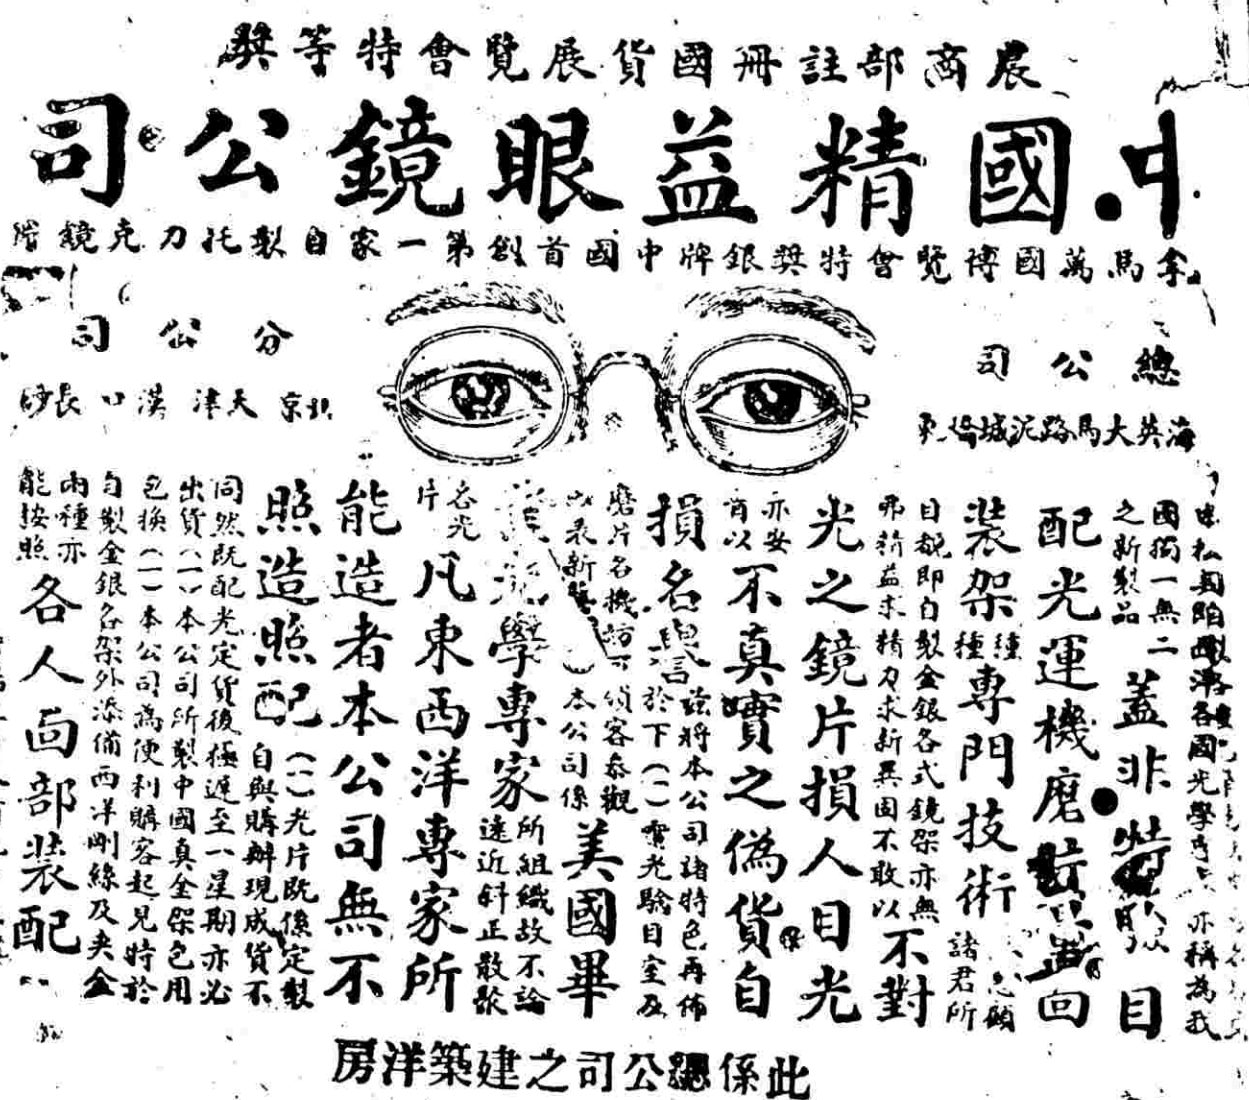 農商部註冊國貨展覽會特等獎
中國精益眼鏡公司
拿馬萬國博覽會特獎銀牌中國首創第一家自製托力克鏡
總公司
海英大馬路泥城橋東
分公司
北京 天津 漢口 長沙
國獨一無二
之新製品
蓋非特 目
配光運機磨
面
裝架種種專門技術
諸君所
顧
目覩即自製金銀各式鏡架亦無
弗精益求精力求新異固不敢以
不對
光之鏡片損人目光
亦安
肯以
不真實之偽貨自
損名譽茲將本公司諸特色再佈
於下(一)實光驗目室及
磨片各機
客參觀
本公司係
美國畢
業光學專家所組織故不論
遠近斜正散聚
各光
片
凡東西洋專家所
能造者本公司無不
照造照配(一)光片既係定製
自與購辦現成貨不
同然既配光定貨後極遲至一星期亦必
出貨(一)本公司所製中國真金架包用
包換(一)本公司為便利購客起見時於
自製金銀各架外添備西洋剛絲及夾金
兩種亦
能按照
各人面部裝配
此係總公司之建築洋房